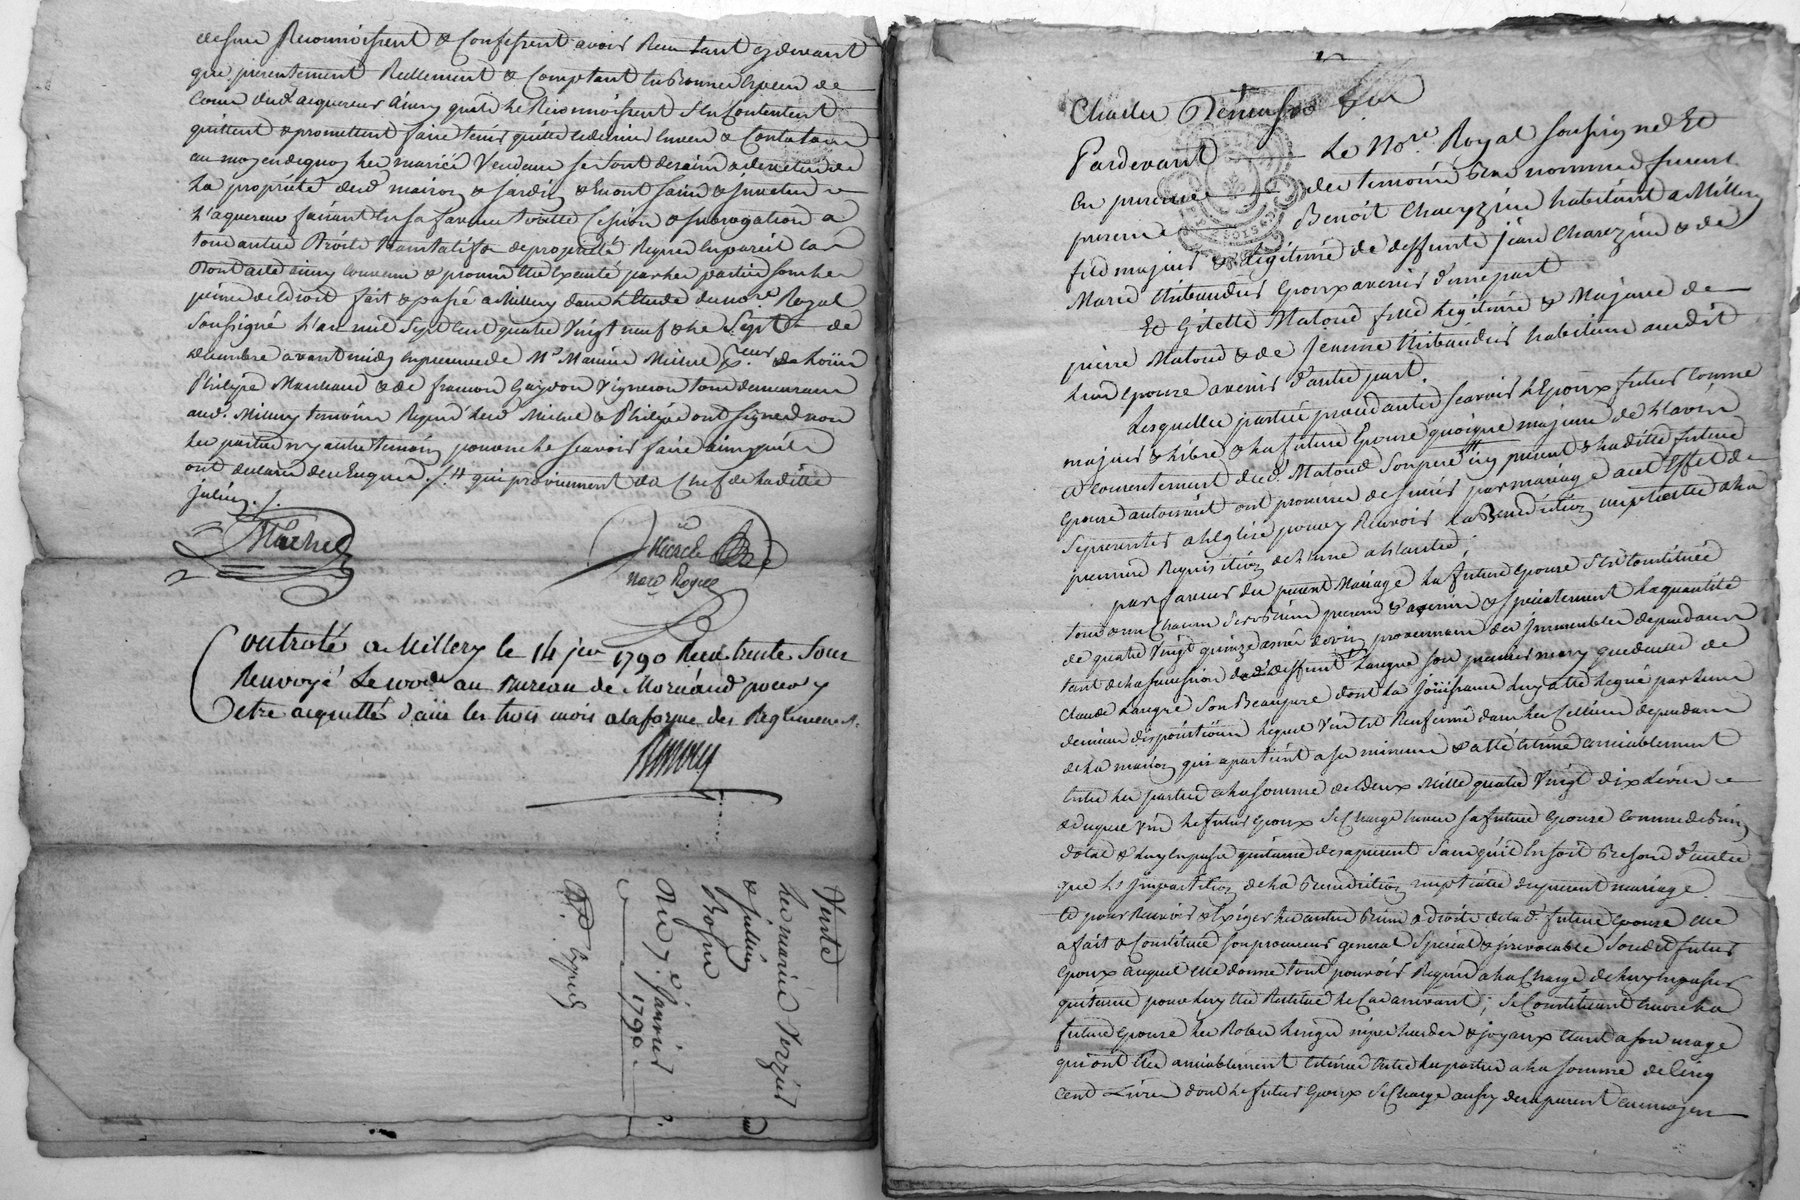 dessus Reconnoissent & Confessent avoir Reçu tant cydevant
que presentement Réellement & Comptant en Bonnes Especes de
Cours dud. acquereur ainsy que le Reconnoissent s'en Contentent
quittent & promettent faire tenir quitte led. envers & Contre tous
au moyen dequoy les mariés Vendeurs se sont
La propriété dud. maison & Jardin & en ont saisi &
L'aquereur faisant en sa faveur toutte Cession & subrogation
tous autres Droits translatifs de propriété Requis en pareil Cas
Dont acte ainsy convenu & promis être Executé par les parties sous les
peines de Droit fait & passé a Millery dans L'Etude du no.re Royal
soussigné L'an mil sept Cent quatre Vingt neuf & le sept de
decembre avant midy en presence de Michel
Philipe Marchand & de françois Gaydon Vigneron tous demeurants
aud. Millery temoins Requis Led. Michel & Philipe ont signé & non
les parties ny autre temoin pour ne le scavoir faire ainsy qu'ils
ont declaré de ce Enquis ./. # qui proviennent du Chef de laditte
julien ./.
Michel
no.re Royal
Controlé a Millery le 14 jer 1790 Reçu trente sous
Renvoyé le 100e au Bureau de Mornand pour y
etre acquitté dans les trois mois a la forme des Reglements.
Vente
Les mariés Verzieu
& julien
Bogne
Du 7.e Janvier
1790.
Exp.
Charles
Pardevant Le No.re Royal soussigné Et
En presence des temoins Bas nommés furent
presents Benoit Charezieu habitant a Millery
fils majeur & légitime de deffunts jean Charezieu & de
Marie thibaudier Epoux avenir d'une part
Et Gilette Matoud fille Legitime & Majeure de
pierre Matoud & de Jeanne thibaudier habitante audit
Lieu Epouse avenir d'autre part.
Lesquelles parties procedantes scavoir L'Epoux futur Comme
majeur & Libre & La future Epouse quoique majeure de L'avis
& Consentement dud. Matoud son pere icy present & laditte future
Epouse autorisant ont promis de s'unir par mariage a cet Effet de
se presenter a l'Eglise pour y Recevoir La Benediction nuptiale a La
premiere Requisition de L'une a L'autre ;
par faveur du present Mariage La future Epouse s'est Constituée
tous & un Chacun ses Biens presens & avenir & specialement La quantité
de quatre Vingt quinze anées de vin provenant des Immeubles dependants
tant de la succession dud. deffunt Langue son premier mary que de celle de
Claude Langue son Beaupere dont La Joüissance Luy a été Leguée par Leurs
dernieres dispositions Lequel Vin est Renfermé dans Les Celliers dependant
de La maison qui apartient a ses mineurs & a été Estimé amiablement
Entre Les parties a La somme de Deux Mille quatre Vingt dix Livres
duquel Vin Le futur Epoux se Charge envers sa future Epouse Comme de Bien
Dotal & Luy en passe quittance des apresent sans qu'il En soit Besoin d'autre
que L'Impartition de La Benediction nuptiale du present mariage
Et pour Recevoir & Exiger Les autres Biens & droits de lad. future Epouse Elle
a fait & Constitué son procureur general special & irrevocable Soudit futur
Epoux auquel Elle donne tout pouvoir Requis a La Charge de Luy en passer
quittance pour Luy Etre Restitué Le Cas arrivant ; se Constituant Encore La
future Epouse Les Robes Linges nipes hardes & joyaux Etant a son usage
qui ont Eté amiablement Estimés Entre Les parties a La somme de Cinq
Cent Livres dont Le futur Epoux se Charge aussy des apresent au moyen